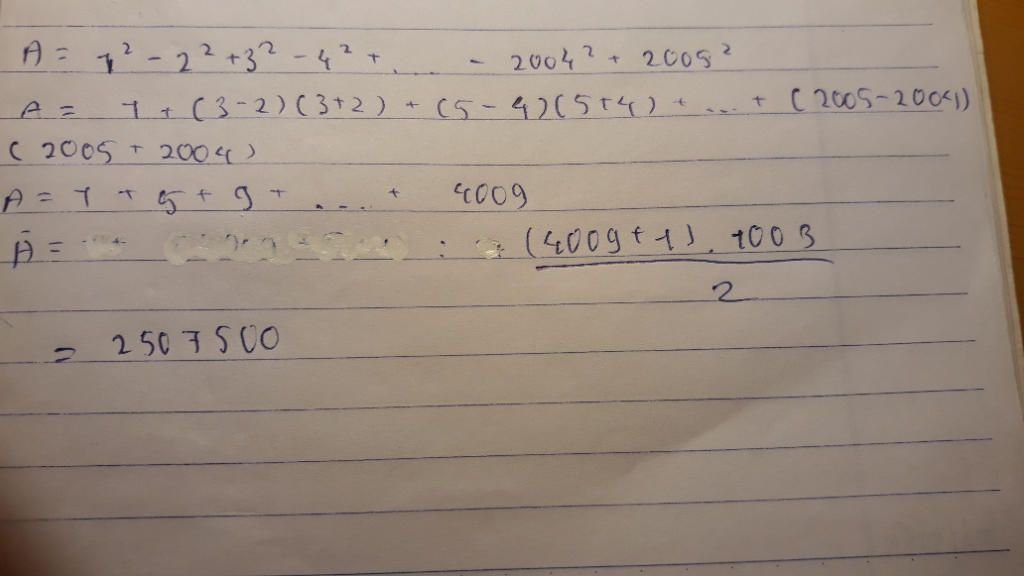 A = 1² - 2² + 3² - 4² + .... - 2004² + 2005²
A = 1 + (3-2)(3+2) + (5-4)(5+4) + ... + (2005-2004)
(2005 + 2004)
A = 1 + 5 + 9 + .... + 4009
A = : (4009+1). 1003
2
= 2507500